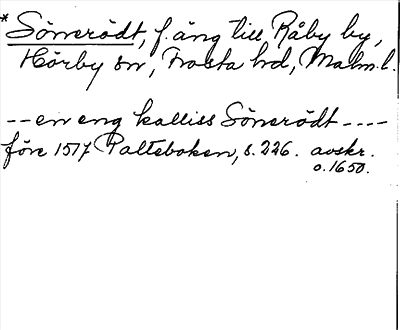 *Sönerödt, f. äng till Råby by,
Hörby sn, Frosta hd, Malm. l.
-- en eng kalliss Sönerödt ----
före 1517 Palteboken, s. 226. avskr.
o. 1650.